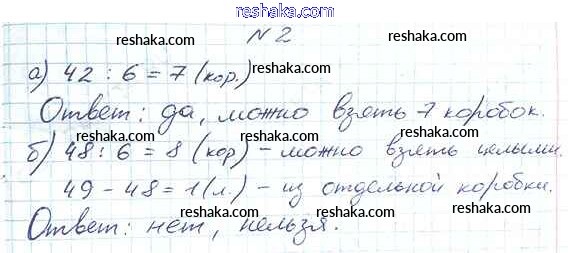 reshaka.com
№ 2
reshaka.com
reshaka.com
а) 42 : 6 = 7 (кор.) reshaka.com
Ответ: да, можно взять 7 коробок.
reshaka.com
reshaka.com
б) 48 : 6 = 8 (кор) – можно взять целыми.
reshaka.com
49 – 48 = 1 (л.) – из отдельной коробки.
reshaka.com
reshaka.com
Ответ: нет, нельзя.
reshaka.com